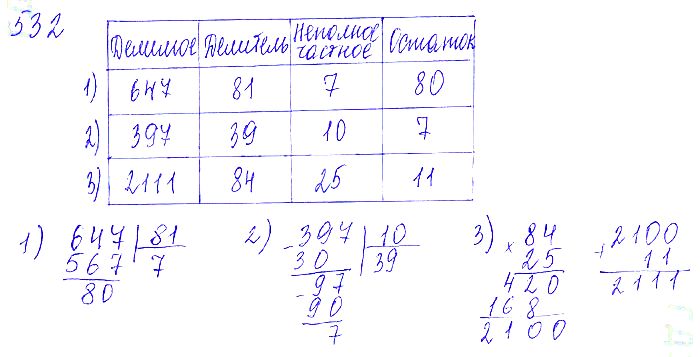 532
Делимое Делитель Неполное частное Остаток
1) 647 81 7 80
2) 397 39 10 7
3) 2111 84 25 11
1) 647 81
567 7
80
2) - 397 10
30 39
- 97
90
7
3) × 84
25
420
168
2100
+ 2100
11
2111